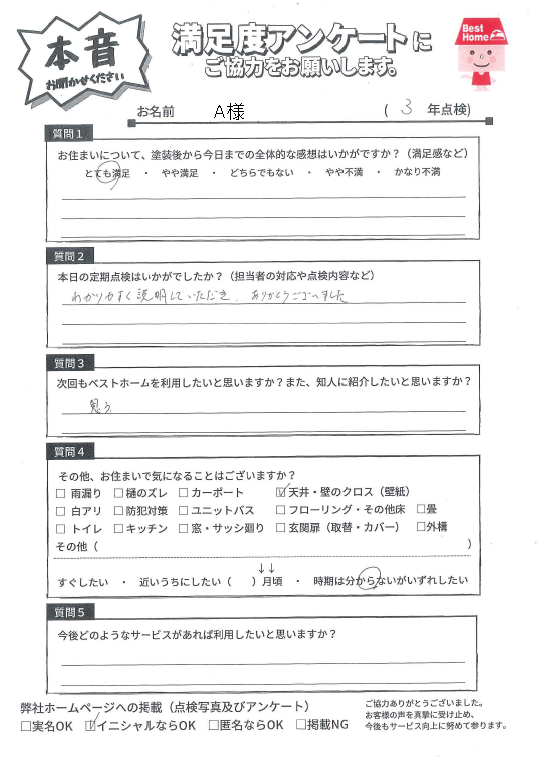 本音
お聞かせください
満足度アンケートに
ご協力をお願いします。
Best Home
お名前 A様 ( 3 年点検)
質問1
お住まいについて、塗装後から今日までの全体的な感想はいかがですか？（満足感など）
とても満足 ・ やや満足 ・ どちらでもない ・ やや不満 ・ かなり不満
質問2
本日の定期点検はいかがでしたか？（担当者の対応や点検内容など）
わかりやすく説明していただき、ありがとうございました
質問3
次回もベストホームを利用したいと思いますか？また、知人に紹介したいと思いますか？
思う
質問4
その他、お住まいで気になることはございますか？
☐ 雨漏り ☐ 樋のズレ ☐ カーポート ☑ 天井・壁のクロス（壁紙）
☐ 白アリ ☐ 防犯対策 ☐ ユニットバス ☐ フローリング・その他床 ☐畳
☐ トイレ ☐ キッチン ☐ 窓・サッシ廻り ☐ 玄関扉（取替・カバー） ☐外構
その他（ ）
↓↓
すぐしたい ・ 近いうちにしたい（ ）月頃 ・ 時期は分からないがいずれしたい
質問5
今後どのようなサービスがあれば利用したいと思いますか？
弊社ホームページへの掲載（点検写真及びアンケート）
☐実名OK ☑イニシャルならOK ☐匿名ならOK ☐掲載NG
ご協力ありがとうございました。
お客様の声を真摯に受け止め、
今後もサービス向上に努めて参ります。